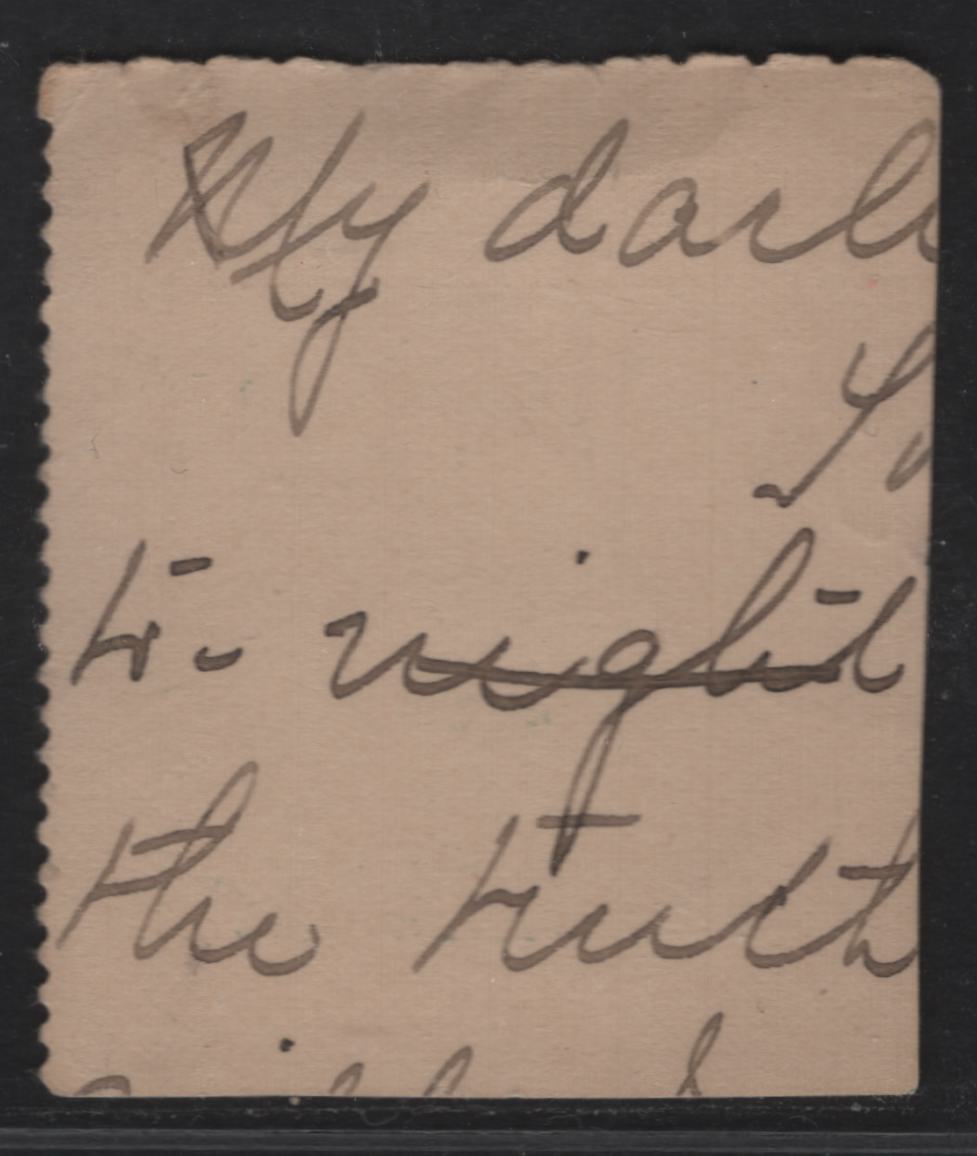 My darl
to-night
the trut